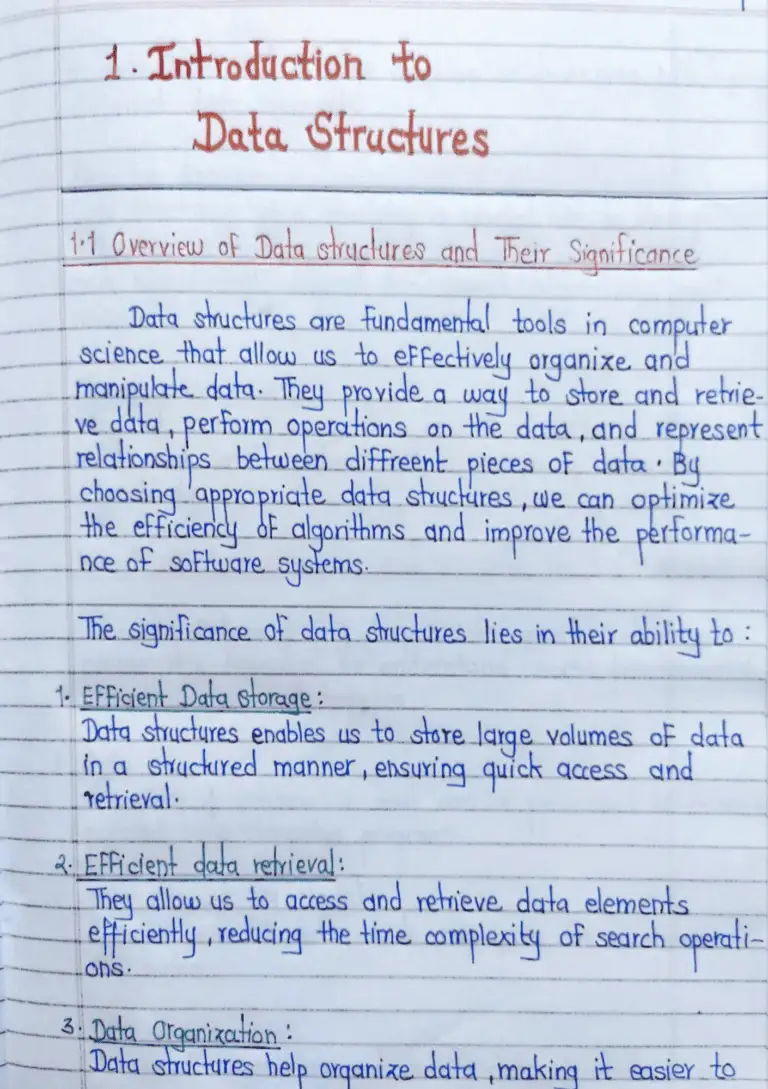 1. Introduction to
Data Structures
1.1 Overview of Data structures and Their Significance
Data structures are fundamental tools in computer
science that allow us to effectively organize and
manipulate data. They provide a way to store and retrie-
ve data, perform operations on the data, and represent
relationships between diffreent pieces of data. By
choosing appropriate data structures, we can optimize
the efficiency of algorithms and improve the performa-
nce of software systems.
The significance of data structures lies in their ability to :
1. Efficient Data Storage :
Data structures enables us to store large volumes of data
in a structured manner, ensuring quick access and
retrieval.
2. Efficient data retrieval :
They allow us to access and retrieve data elements
efficiently, reducing the time complexity of search operati-
ons.
3. Data Organization :
Data structures help organize data, making it easier to